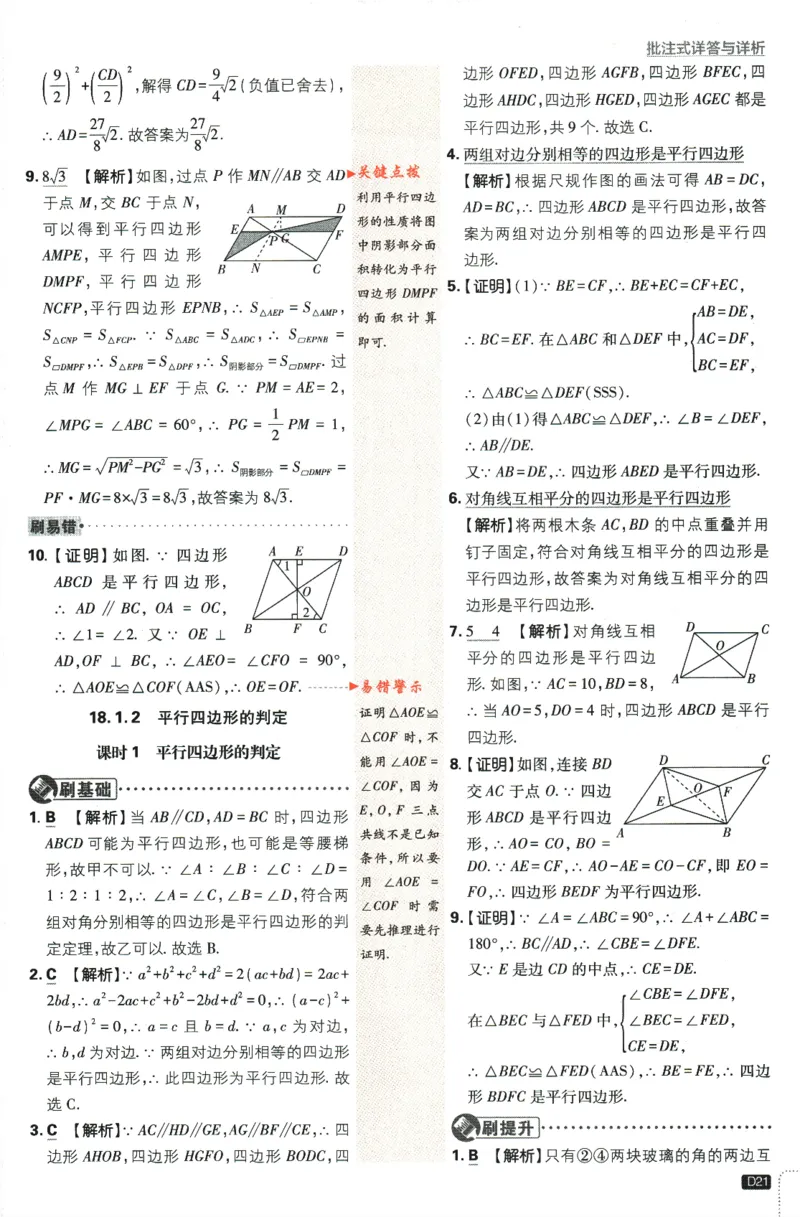 批注式详答与详析
(9/2)²+(CD/2)²,解得 CD=9/4√2(负值已舍去),
∴ AD=27/8√2. 故答案为27/8√2.
9. 8√3 【解析】如图,过点 P 作 MN∥AB 交 AD
于点 M,交 BC 于点 N,
可以得到平行四边形
AMPE,平行四边形
DMPF,平行四边形
A M D E P G F B N C
NCFP,平行四边形 EPNB,∴ S△AEP = S△AMP,
S△CNP = S△FCP. ∵ S△ABC = S△ADC,∴ S□EPNB =
S□DMPF,∴ S△EPB = S△DPF,∴ S阴影部分 = S□DMPF. 过
点 M 作 MG ⊥ EF 于点 G. ∵ PM = AE = 2,
∠MPG = ∠ABC = 60°,∴ PG = 1/2 PM = 1,
∴ MG = √(PM²-PG²) = √3,∴ S阴影部分 = S□DMPF =
PF·MG=8×√3=8√3,故答案为 8√3.
刷易错
10.【证明】如图. ∵ 四边形
ABCD 是平行四边形,
∴ AD ∥ BC, OA = OC,
∴ ∠1= ∠2. 又∵ OE ⊥
A E D 1 O 2 B F C
AD,OF ⊥ BC, ∴ ∠AEO= ∠CFO = 90°,
∴ △AOE≌△COF(AAS),∴ OE=OF.
18.1.2 平行四边形的判定
课时1 平行四边形的判定
刷基础
1. B 【解析】当 AB∥CD,AD=BC 时,四边形
ABCD 可能为平行四边形,也可能是等腰梯
形,故甲不可以. ∵ ∠A∶∠B∶∠C∶∠D=
1∶2∶1∶2,∴ ∠A=∠C,∠B=∠D,符合两
组对角分别相等的四边形是平行四边形的判
定定理,故乙可以. 故选 B.
2. C 【解析】∵ a²+b²+c²+d²=2(ac+bd)=2ac+
2bd,∴ a²-2ac+c²+b²-2bd+d²=0,∴ (a-c)²+
(b-d)²=0,∴ a=c 且 b=d. ∵ a,c 为对边,
∴ b,d 为对边. ∵ 两组对边分别相等的四边形
是平行四边形,∴ 此四边形为平行四边形. 故
选 C.
3. C 【解析】∵ AC∥HD∥GE,AG∥BF∥CE,∴ 四
边形 AHOB,四边形 HGFO,四边形 BODC,四
关键点拨
利用平行四边
形的性质将图
中阴影部分面
积转化为平行
四边形 DMPF
的面积计算
即可.
易错警示
证明△AOE≌
△COF 时,不
能用∠AOE=
∠COF,因为
E,O,F 三点
共线不是已知
条件,所以要
用 ∠AOE =
∠COF 时需
要先推理进行
证明.
边形 OFED,四边形 AGFB,四边形 BFEC,四
边形 AHDC,四边形 HGED,四边形 AGEC 都是
平行四边形,共 9 个. 故选 C.
4. 两组对边分别相等的四边形是平行四边形
【解析】根据尺规作图的画法可得 AB=DC,
AD=BC,∴ 四边形 ABCD 是平行四边形,故答
案为两组对边分别相等的四边形是平行四
边形.
5.【证明】(1)∵ BE=CF,∴ BE+EC=CF+EC,
∴ BC=EF. 在△ABC 和△DEF 中,{AB=DE,
AC=DF,
BC=EF,
∴ △ABC≌△DEF(SSS).
(2)由(1)得△ABC≌△DEF,∴ ∠B=∠DEF,
∴ AB∥DE.
又∵ AB=DE,∴ 四边形 ABED 是平行四边形.
6. 对角线互相平分的四边形是平行四边形
【解析】将两根木条 AC,BD 的中点重叠并用
钉子固定,符合对角线互相平分的四边形是
平行四边形,故答案为对角线互相平分的四
边形是平行四边形.
7. 5 4 【解析】对角线互相
平分的四边形是平行四边
形. 如图,∵ AC=10,BD=8,
D C O A B
∴ 当 AO=5,DO=4 时,四边形 ABCD 是平行
四边形.
8.【证明】如图,连接 BD
交 AC 于点 O. ∵ 四边
形 ABCD 是平行四边
形,∴ AO= CO, BO =
D C O F E A B
DO. ∵ AE=CF,∴ AO-AE=CO-CF,即 EO=
FO,∴ 四边形 BEDF 为平行四边形.
9.【证明】∵ ∠A=∠ABC=90°,∴ ∠A+∠ABC=
180°,∴ BC∥AD,∴ ∠CBE=∠DFE.
又∵ E 是边 CD 的中点,∴ CE=DE.
在△BEC 与△FED 中,{∠CBE=∠DFE,
∠BEC=∠FED,
CE=DE,
∴ △BEC≌△FED(AAS),∴ BE=FE,∴ 四边
形 BDFC 是平行四边形.
刷提升
1. B 【解析】只有②④两块玻璃的角的两边互
D21